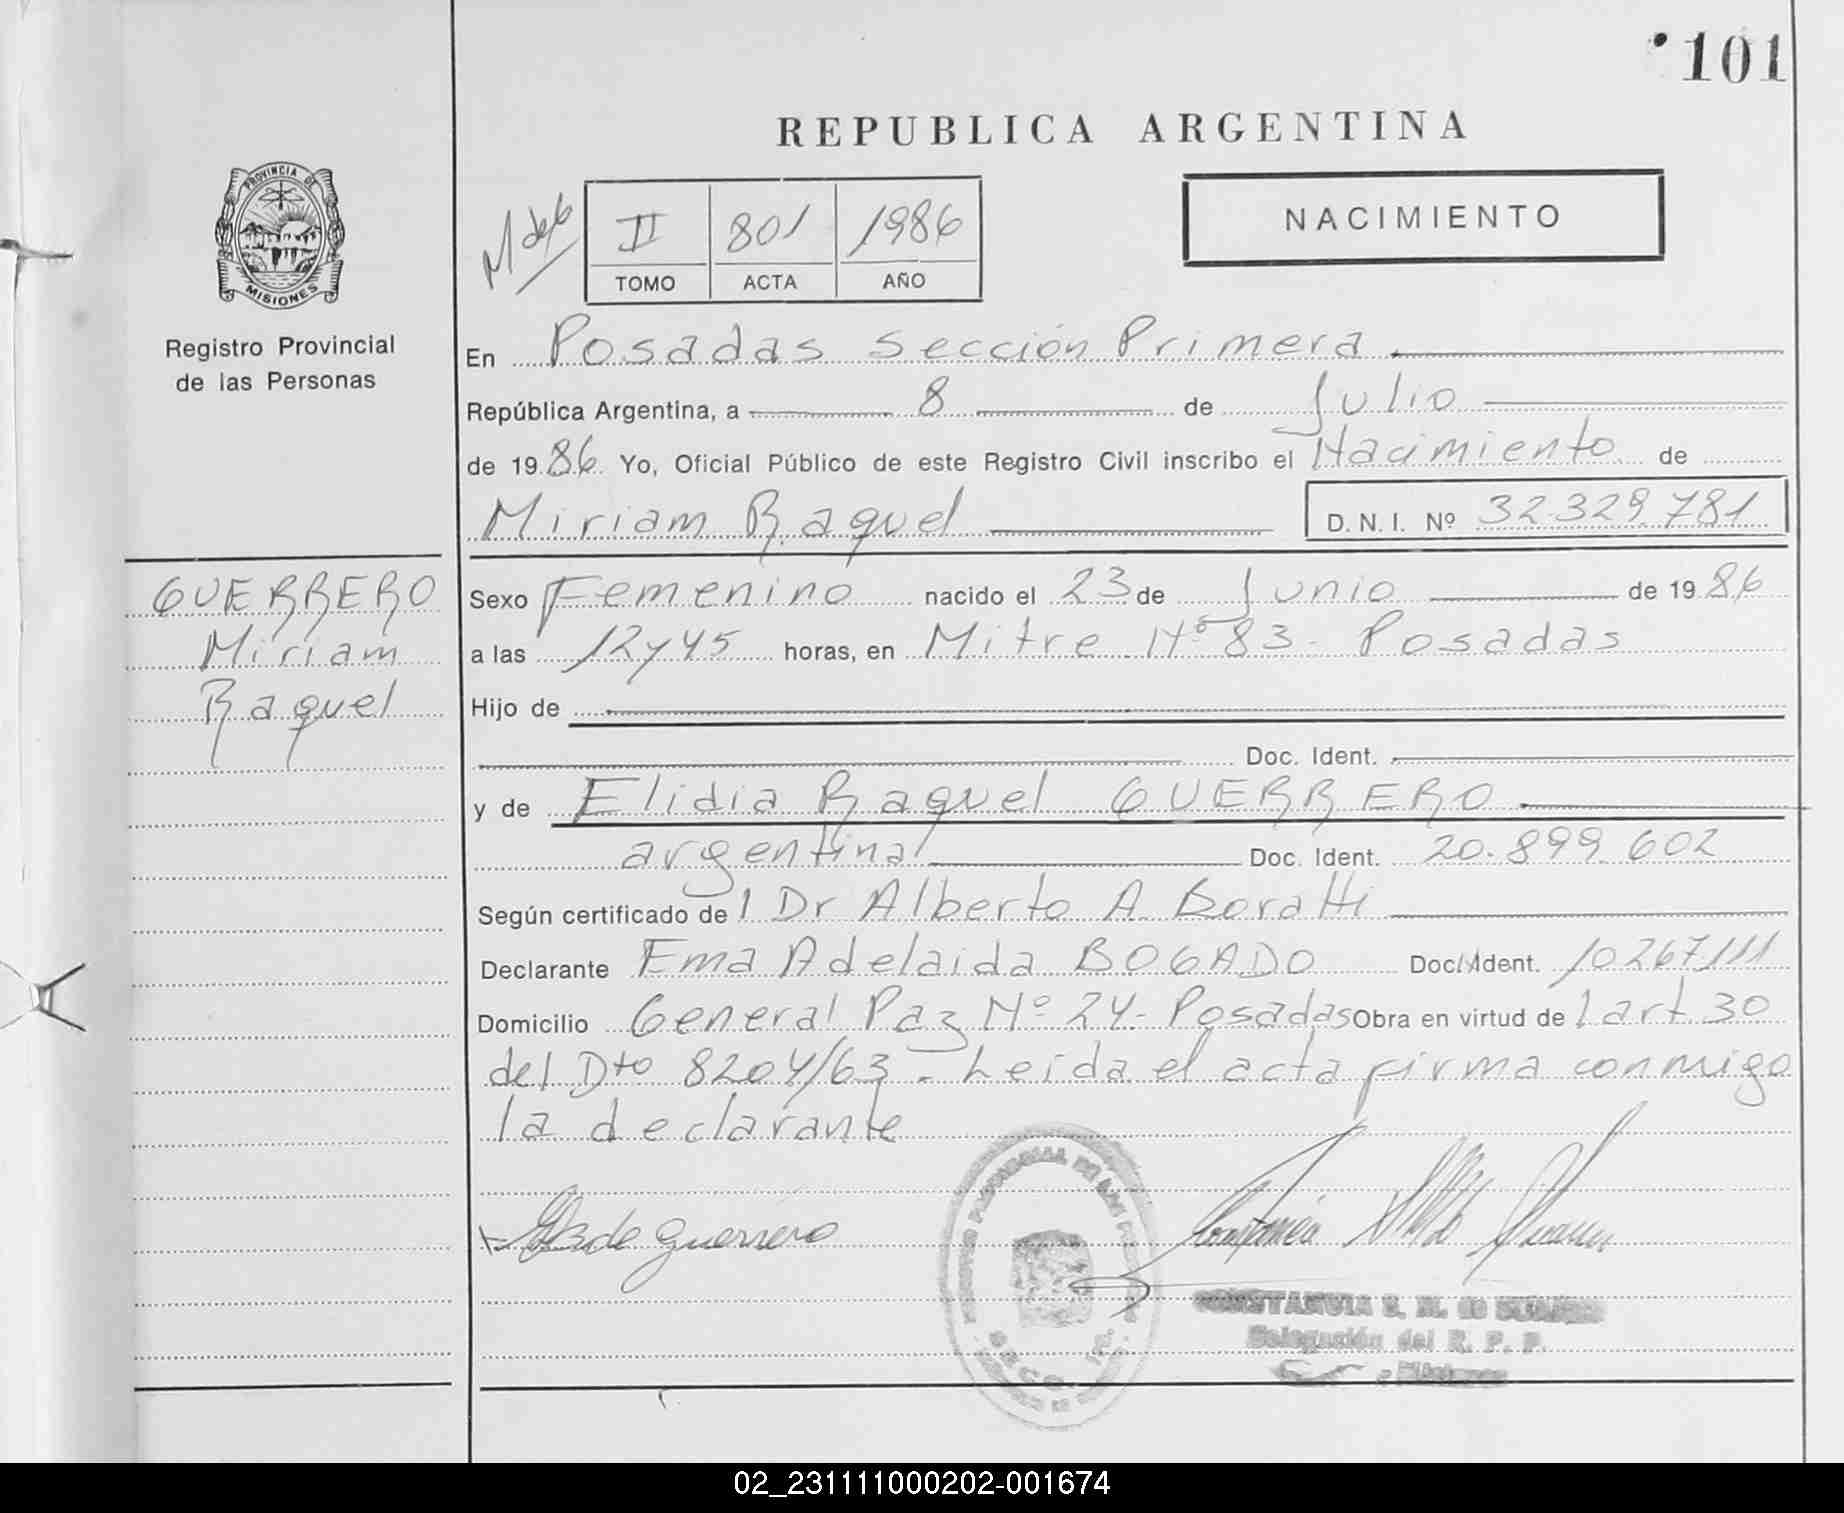 101
REPUBLICA ARGENTINA
PROVINCIA DE
MISIONES
Registro Provincial
de las Personas
M de 6
II 801 1986
TOMO ACTA AÑO
NACIMIENTO
En Posadas Sección Primera
República Argentina, a 8 de Julio
de 1986 Yo, Oficial Público de este Registro Civil inscribo el Nacimiento de
Miriam Raquel D.N.I. Nº 32.329.781
GUERRERO
Miriam
Raquel
Sexo Femenino nacido el 23 de Junio de 1986
a las 12 y 45 horas, en Mitre Nº 83 - Posadas
Hijo de
Doc. Ident.
y de Elidia Raquel GUERRERO
argentina Doc. Ident. 20.899.602
Según certificado del Dr Alberto A. Boratti
Declarante Ema Adelaida BOGADO Doc. Ident. 10267111
Domicilio General Paz Nº 24 - Posadas Obra en virtud del art. 30
del Dto 8204/63 - Leída el acta firma conmigo
la declarante
de Guerrero
CONSTANCIA S. M. de
Delegación del R. P. P.
Misiones
02_231111000202-001674